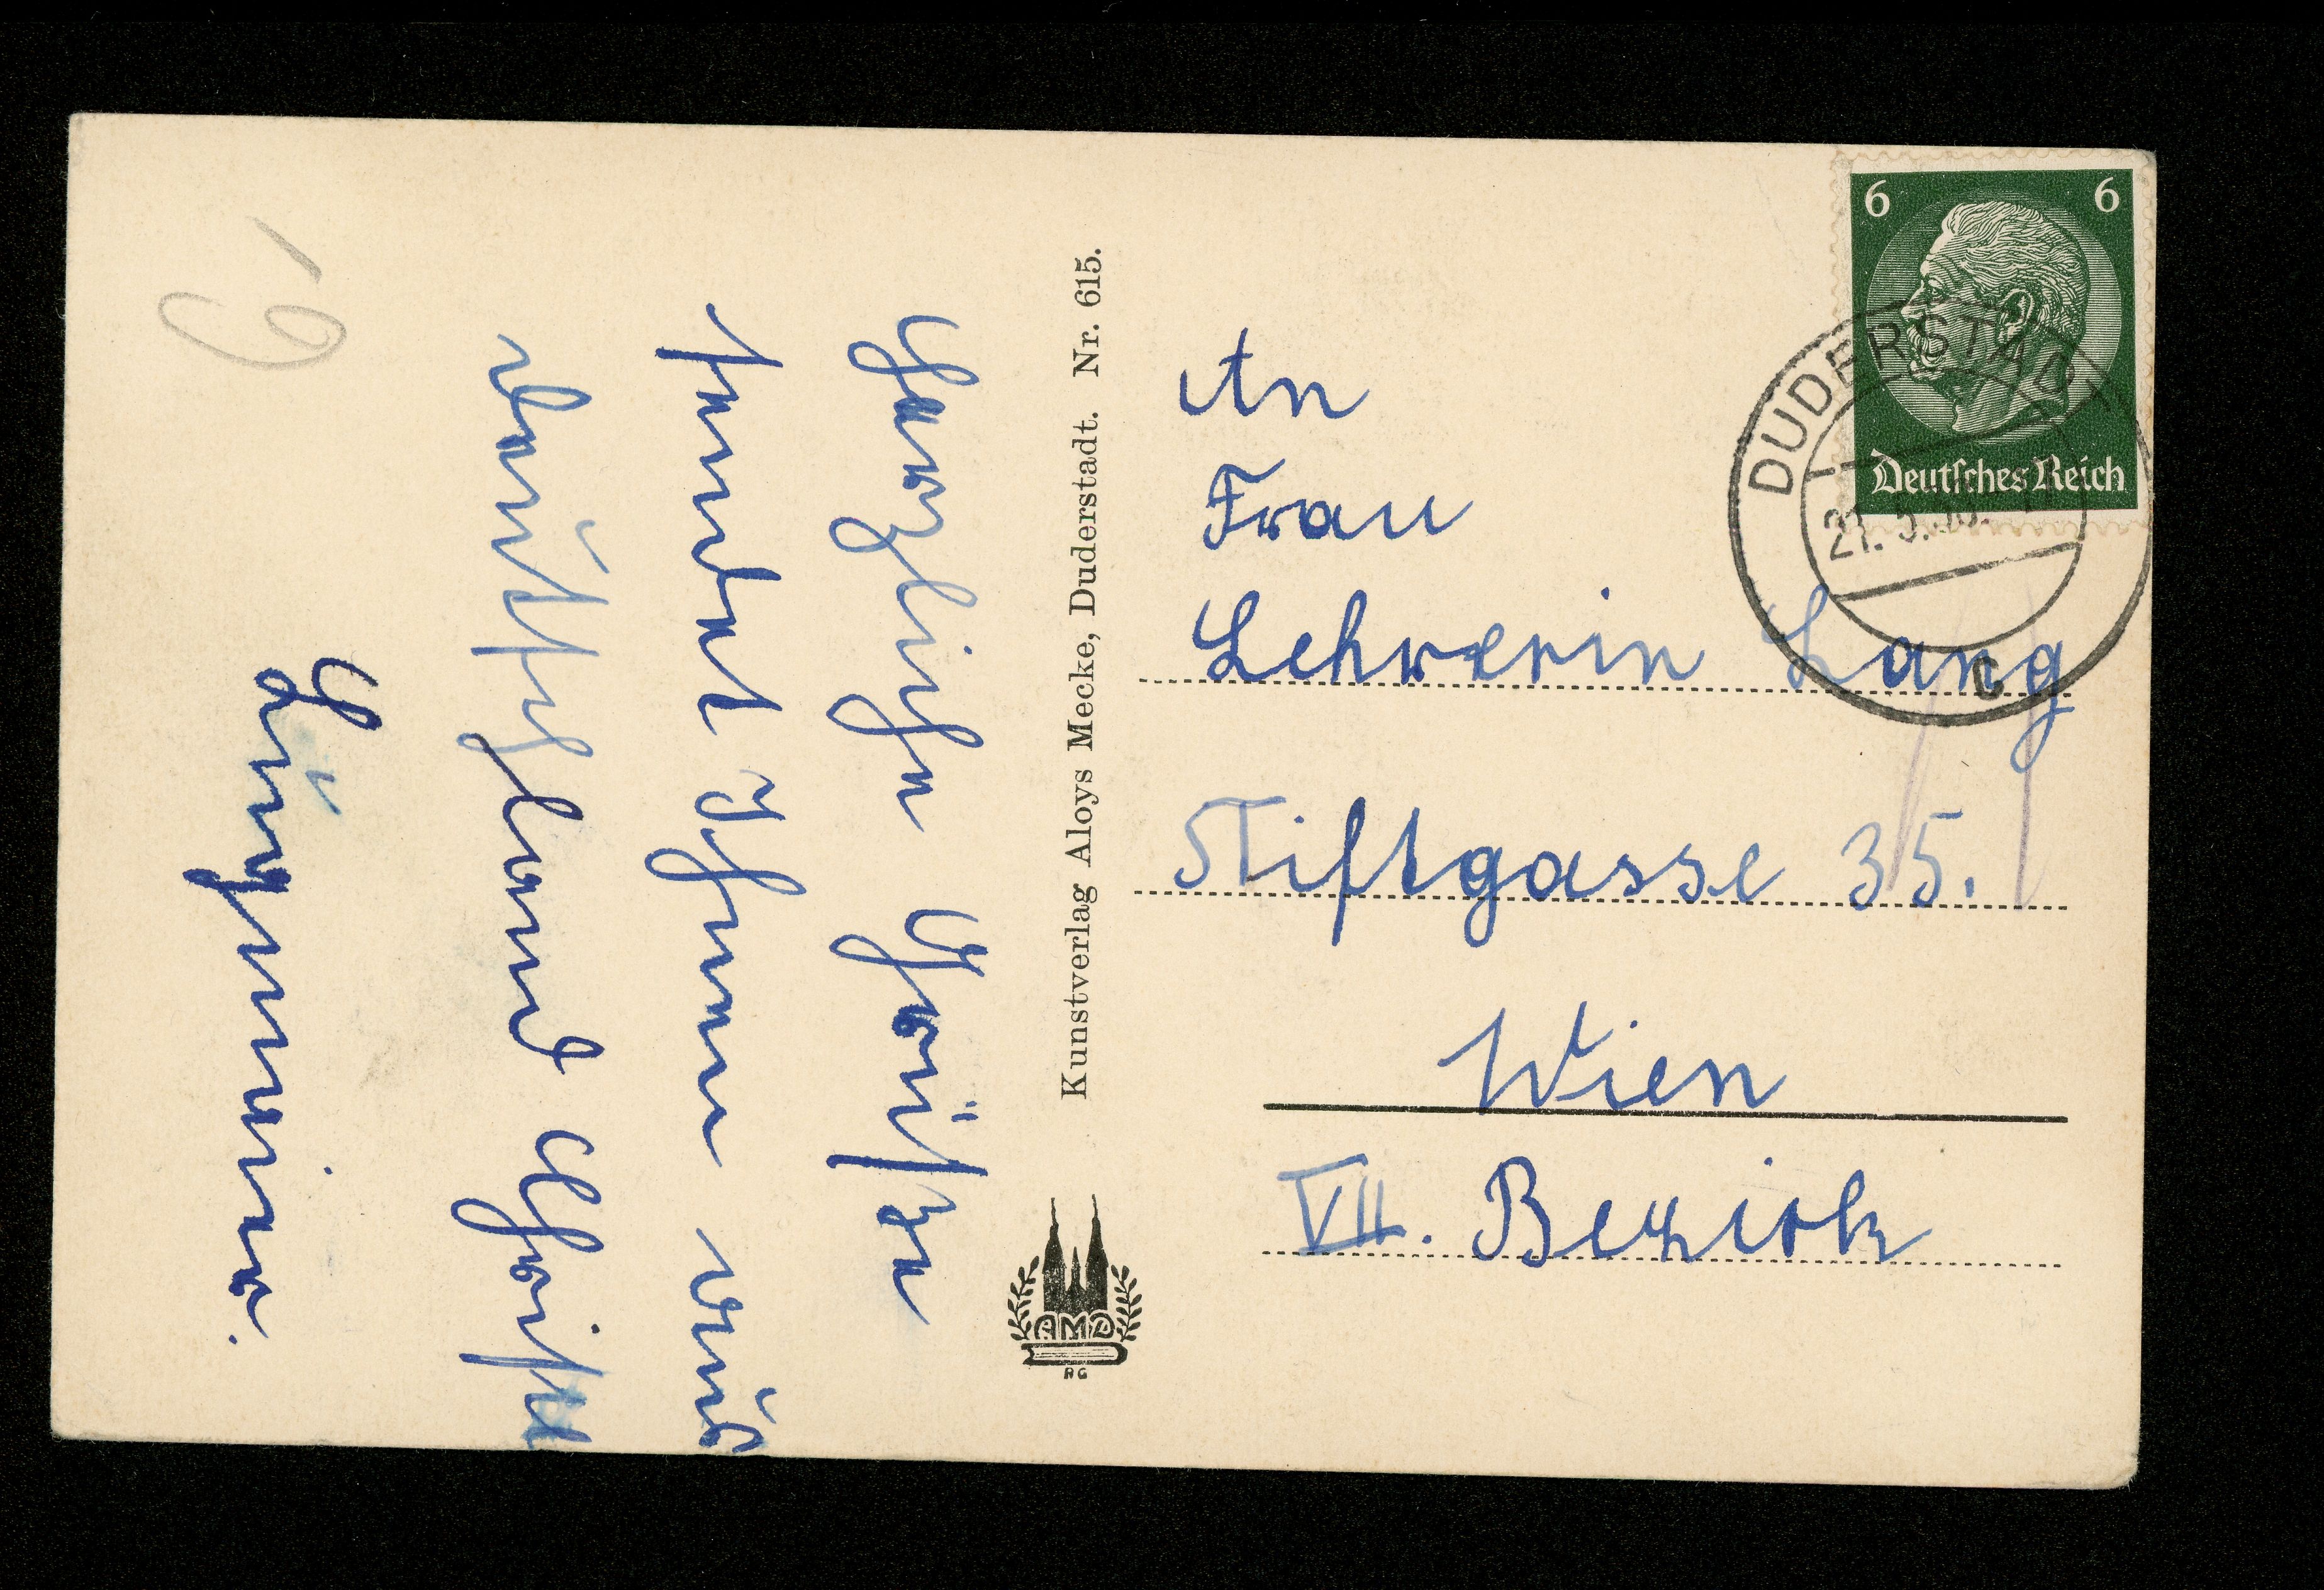 Herzliche Grüße
sendet Ihnen aus
Deutschland Christl
19
Kunstverlag Aloys Mecke, Duderstadt. Nr. 615.
AMD
6 6
Deutsches Reich
DUDERSTADT
c
An
Frau
Lehrerin Lang
Stiftgasse 35.
Wien
VII. Bezirk